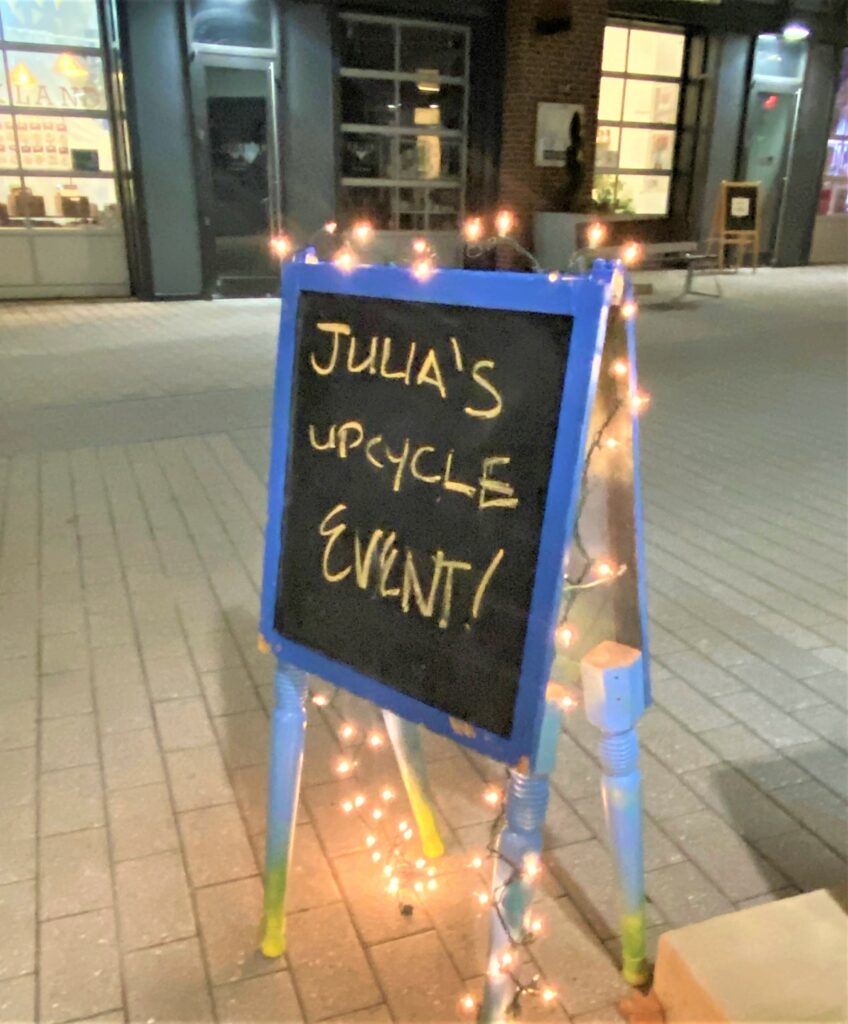 JULIA'S
UPCYCLE
EVENT!